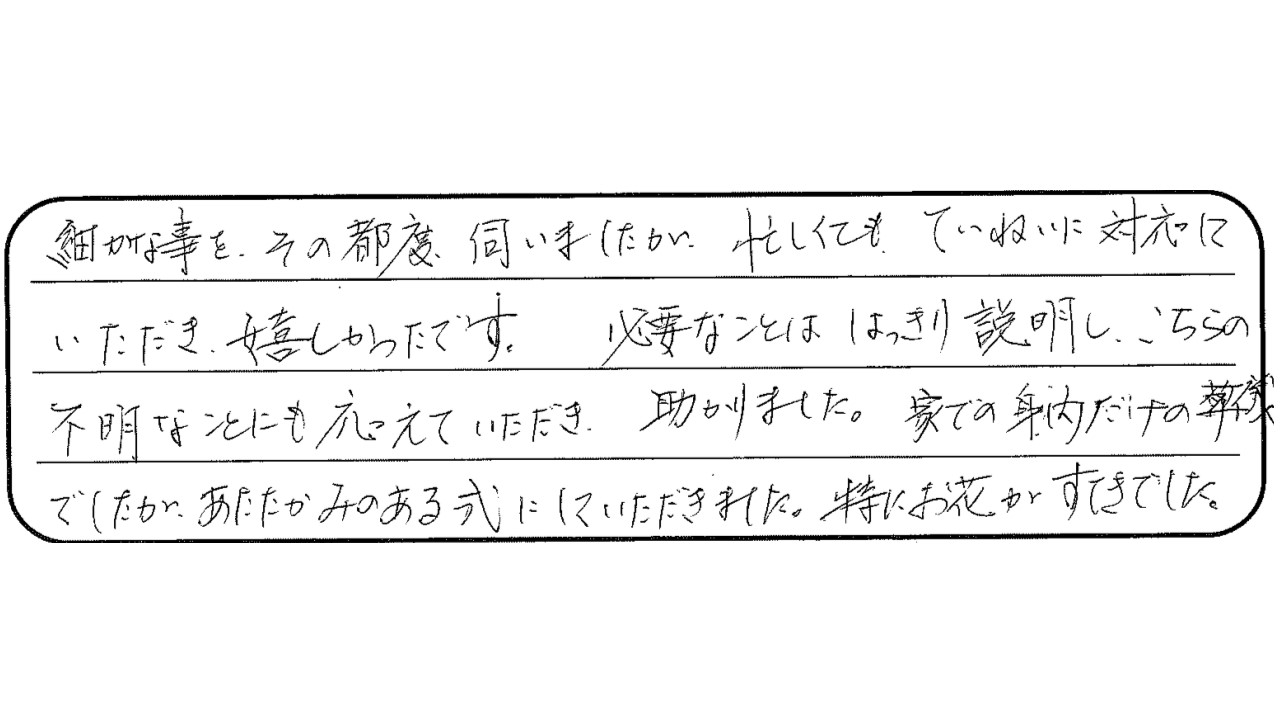 細かな事を、その都度、伺いましたが、忙しくても、ていねいに対応して
いただき、嬉しかったです。 必要なことははっきり説明し、こちらの
不明なことにも応えていただき、助かりました。家での身内だけの葬儀
でしたが、あたたかみのある式にしていただきました。特にお花がすてきでした。